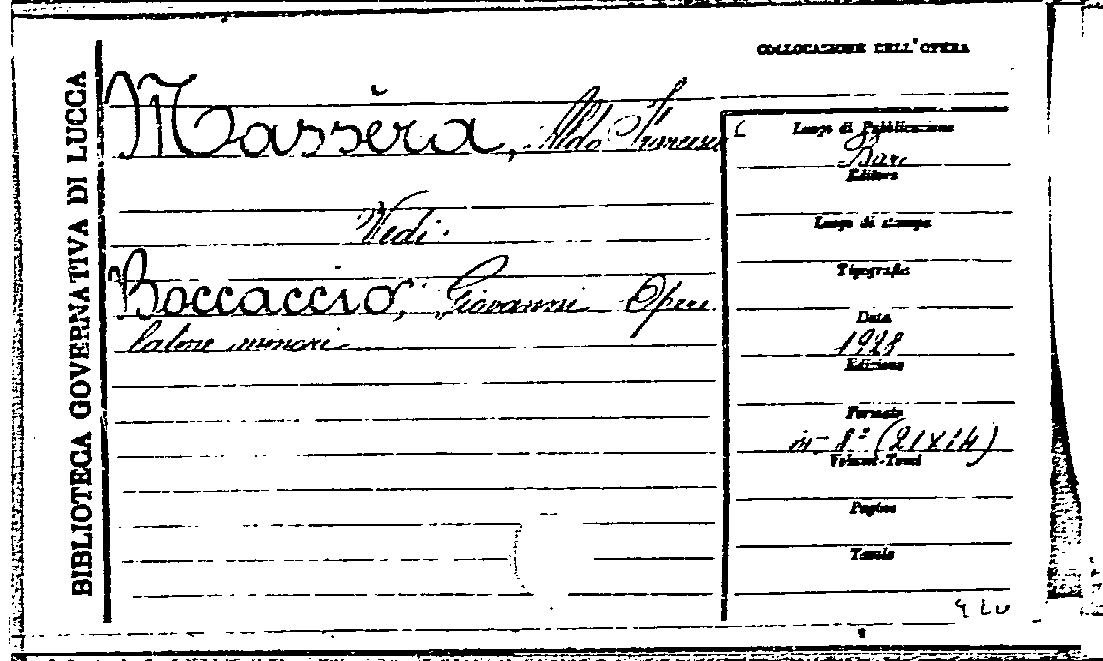 BIBLIOTECA GOVERNATIVA DI LUCCA
COLLOCAZIONE DELL'OPERA
Massèra, Aldo Francesc
Vedi.
Boccaccio, Giovanni Opere
latine minori
Luogo di Pubblicazione
Bari
Editore
Luogo di stampa
Tipografia
Data
1928
Edizione
Formato
in-8° (21x14)
Volumi-Tomi
Pagine
Tavole